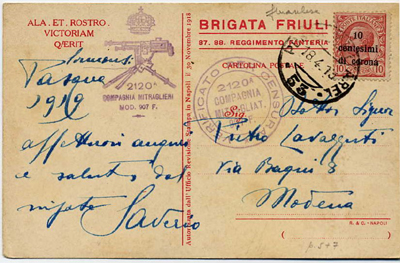 ALA. ET. ROSTRO.
VICTORIAM
Q/ERIT
2120ª
COMPAGNIA MITRAGLIERI
MOD. 907 F.
Pasqua
1919
affettuosi auguri
e saluti dal
nipote Saverio
Autorizzata dall'Ufficio Revisione Stampa in Napoli il 29 Novembre 1918
BRIGATA FRIULI
87. 88. REGGIMENTO FANTERIA
CARTOLINA POSTALE
10
centesimi
di corona
10
18.4.19
53
VERIFICATO CENSURA
2120ª
COMPAGNIA
MITRAGLIAT.
Sig.
Dottor Signor
Pietro Cavazzuti
Via Bagni 8
Modena
R. & C. - NAPOLI
p. 5+7